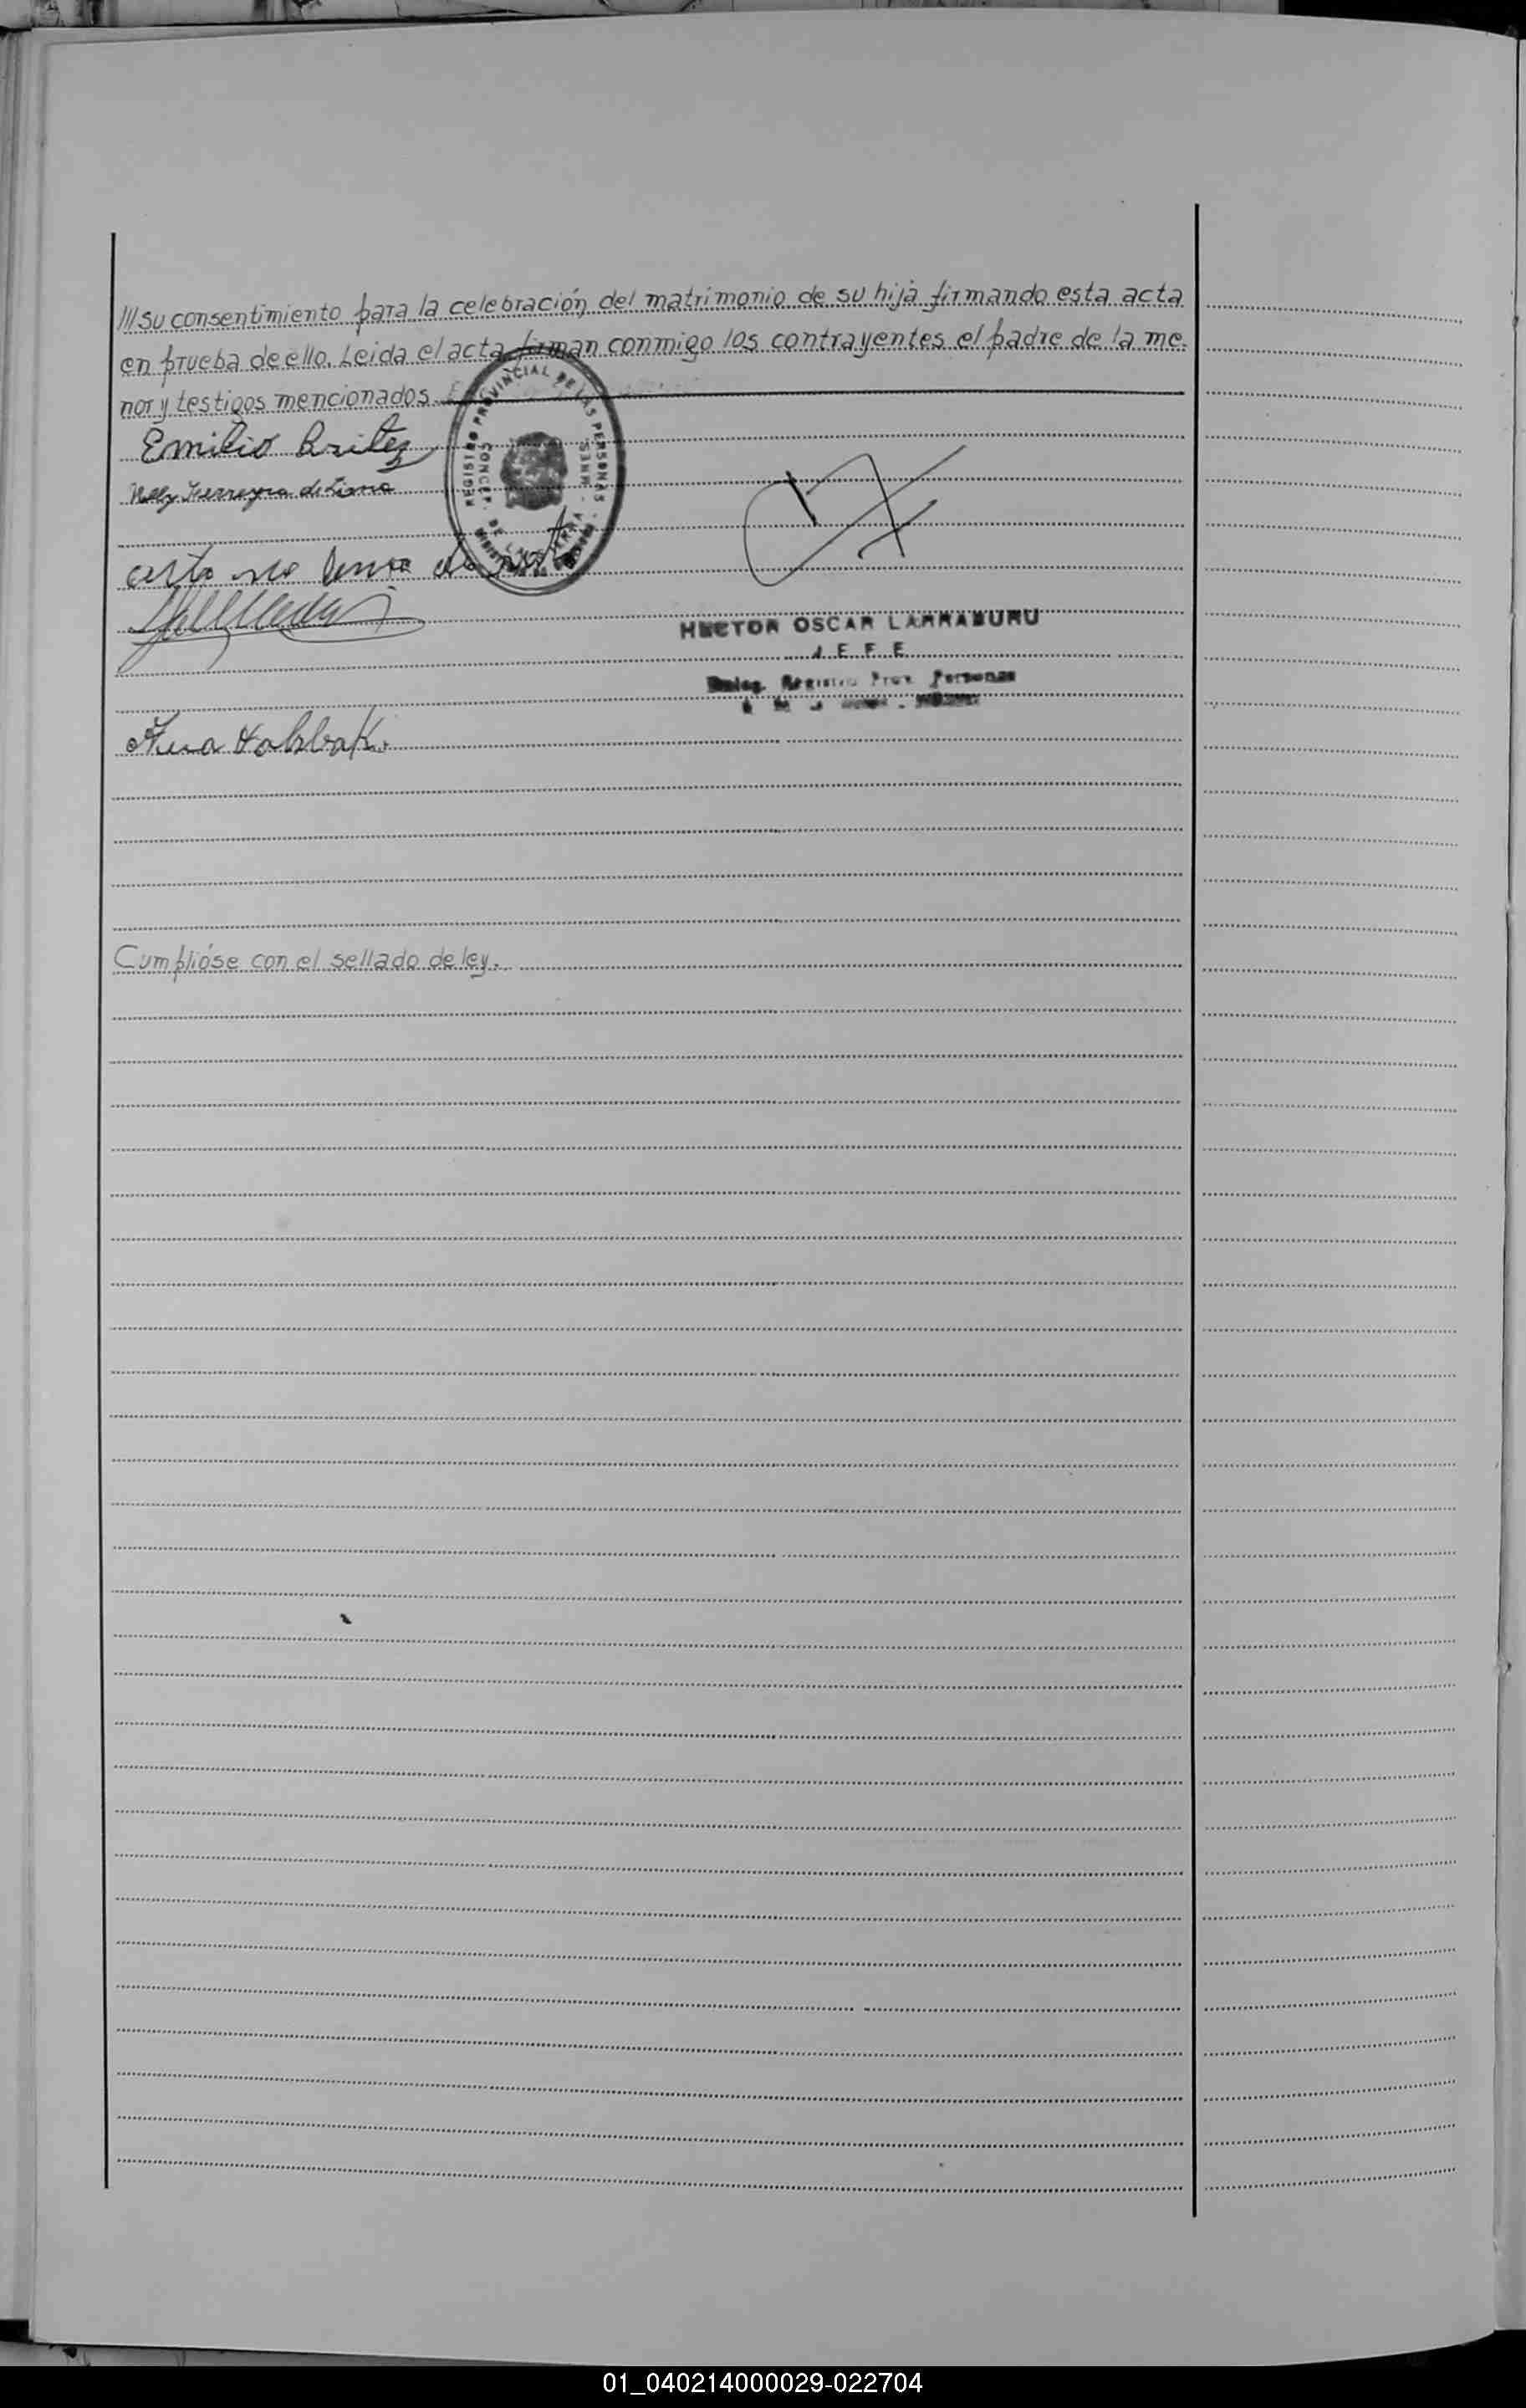 ///su consentimiento para la celebración del matrimonio de su hija firmando esta acta
en prueba de ello. Leida el acta firman conmigo los contrayentes el padre de la me-
nor y testigos mencionados.
REGISTRO PROVINCIAL DE LAS PERSONAS
CONCEP. DE LA SIERRA - MNES.
Emilio Britez
Nelly Ferreyra de
HECTOR OSCAR LARRABURU
JEFE
Deleg. Registro Prov. Personas
Cumplióse con el sellado de ley.
01_040214000029-022704